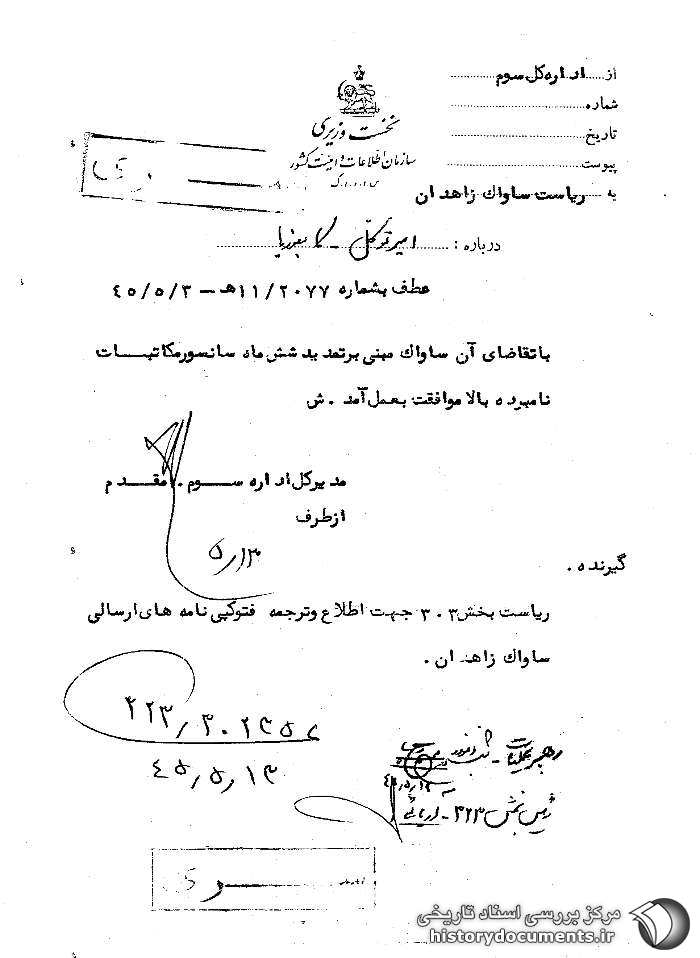 از اداره کل سوم
شماره
تاریخ
پیوست
نخست وزیری
سازمان اطلاعات و امنیت کشور
به ریاست ساواك زاهدان
درباره : امیر توکل -
عطف بشماره ۱۱/۲۰۷۷هـ - ۴۵/۵/۳
باتقاضای آن ساواك مبنی برتمدید شش ماه سانسور مکاتبات
نامبرده بالا موافقت بعمل آمد . ش
مدیرکل اداره سوم . مقدم
ازطرف
۵/۱۳
گیرنده .
ریاست بخش ۳۰۳ جهت اطلاع وترجمه فتوکپی نامه های ارسالی
ساواك زاهدان .
۴۵/۵/۱۳
رهبر عملیات -
رئیس بخش ۳۲۳ - آریائی
سری
مرکز بررسی اسناد تاریخی
historydocuments.ir